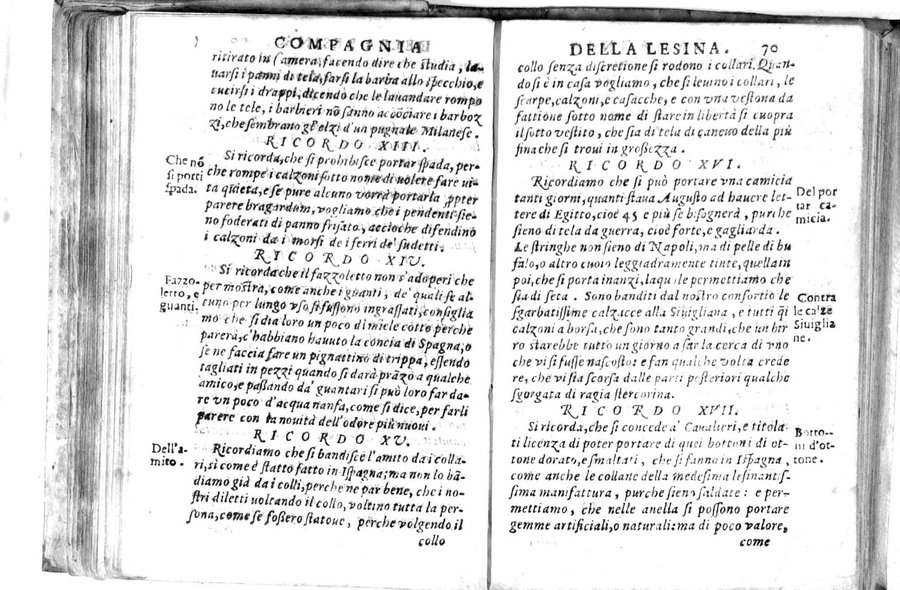 COMPAGNIA
ritirato in Camera, facendo dire che studia, la-
uarsi i panni di tela, farsi la barba allo specchio, e
cucirsi i drappi, dicendo che le lauandare rompo
no le tele, i barbieri nō sanno acōciare i barboz
zi, che sembrano gl'elzi d'un pugnale Milanese.
RICORDO XIII.
Che nō
si porti
spada.
Si ricorda, che si prohibisce portar spada, per-
che rompe i calzoni sotto nome di uolere fare ui-
ta quieta, e se pure alcuno vorrà portarla ꝓpter
parere bragardum, vogliamo che i pendenti sie-
no foderati di panno frisato, accioche difendino
i calzoni da i morsi de i ferri de' sudetti.
RICORDO XIV.
Fazzo-
letto, e
guanti.
Si ricorda che il fazzoletto non s'adoperi che
per mostra, come anche i guanti, de' quali se al-
cuno per lungo vso si fussono ingrassati, consiglia
mo che si dia loro un poco di miele cotto perche
parerà, c'habbiano hauuto la concia di Spagna, o
se ne faccia fare un pignattino di trippa, essendo
tagliati in pezzi quando si darà prāzo a qualche
amico, e passando da' guantari si può loro far da-
re vn poco d'acqua nanfa, come si dice, per farli
parere con la nouità dell'odore più nuoui.
RICORDO XV.
Dell'a-
mito.
Ricordiamo che si bandisce l'amito da i colla-
ri, si come è stato fatto in Ispagna; ma non lo bā-
diamo già da i colli, perche ne par bene, che i no-
stri diletti uoltando il collo, voltino tutta la per-
sona, come se fossero statoue, perche volgendo il
collo
DELLA LESINA. 70
collo senza discretione si rodono i collari. Quan-
do si è in casa vogliamo, che si leuino i collari, le
scarpe, calzoni, e casacche, e con vna vestona da
fattione sotto nome di stare in libertà si cuopra
il sotto vestito, che sia di tela di caneuo della più
fina che si troui in grossezza.
RICORDO XVI.
Del por
tar ca-
micia.
Ricordiamo che si può portare vna camicia
tanti giorni, quanti staua Augusto ad hauere let-
tere di Egitto, cioè 45 e più se bisognerà, purche
sieno di tela da guerra, cioè forte, e gagliarda.
Le stringhe non sieno di Napoli, ma di pelle di bu
falo, o altro cuoio leggiadramente tinte, quella in
poi, che si porta inanzi, la quale permettiamo che
sia di seta. Sono banditi dal nostro consortio le
Contra
le calze
Siuiglia
ne.
sgarbatissime calzacce alla Siuigliana, e tutti qi
calzoni a borsa, che sono tanto grandi, che un bir
ro starebbe tutto un giorno a far la cerca di vno
che vi si fusse nascosto: e fan qualche volta crede
re, che vi sia scorsa dalle parti posteriori qualche
sgorgata di ragia stercorina.
RICORDO XVII.
Botto-
ni d'ot-
tone.
Si ricorda, che si concede a' Caualieri, e titola-
ti licenza di poter portare di quei bottoni di ot-
tone dorato, e smaltati, che si fanno in Ispagna,
come anche le collane della medesima lesinantis-
sima manifattura, purche sieno saldate: e per-
mettiamo, che nelle anella si possono portare
gemme artificiali, o naturali ma di poco valore,
come